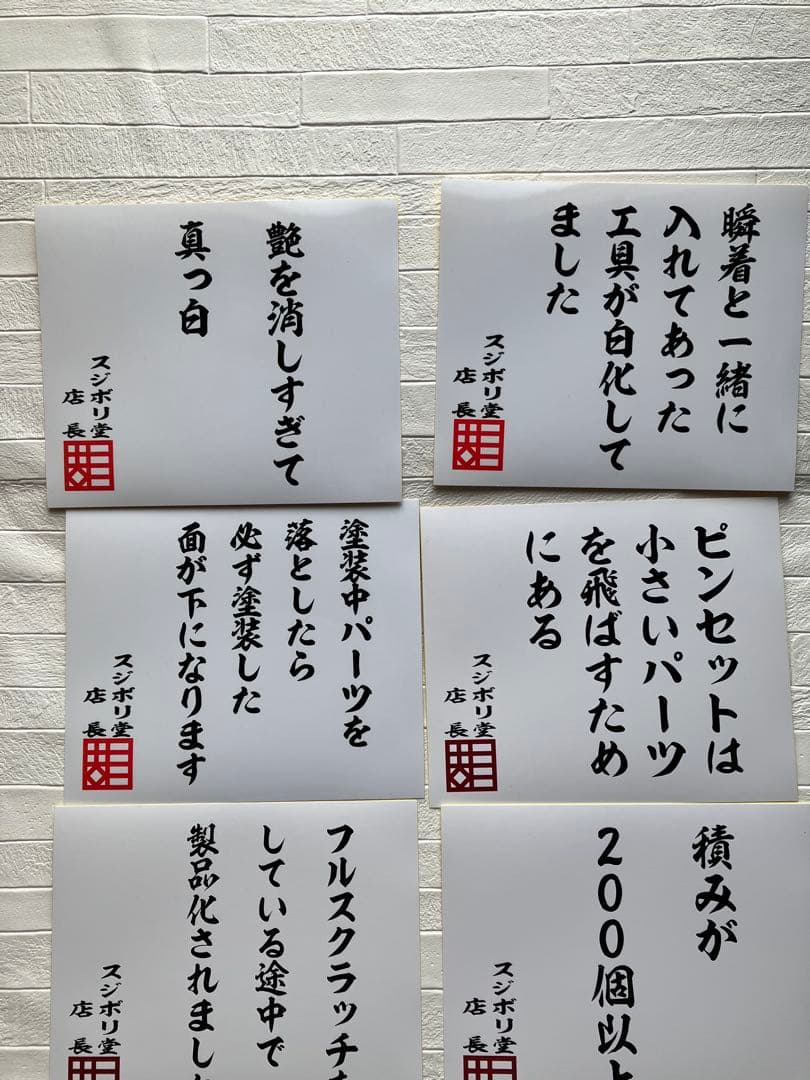 艶を消しすぎて
真っ白
スジボリ堂
店長
瞬着と一緒に
入れてあった
工具が白化して
ました
スジボリ堂
店長
塗装中パーツを
落としたら
必ず塗装した
面が下になります
スジボリ堂
店長
ピンセットは
小さいパーツ
を飛ばすため
にある
スジボリ堂
店長
フルスクラッチ
している途中で
製品化されまし
スジボリ堂
店長
積みが
200個以
スジボリ堂
店長